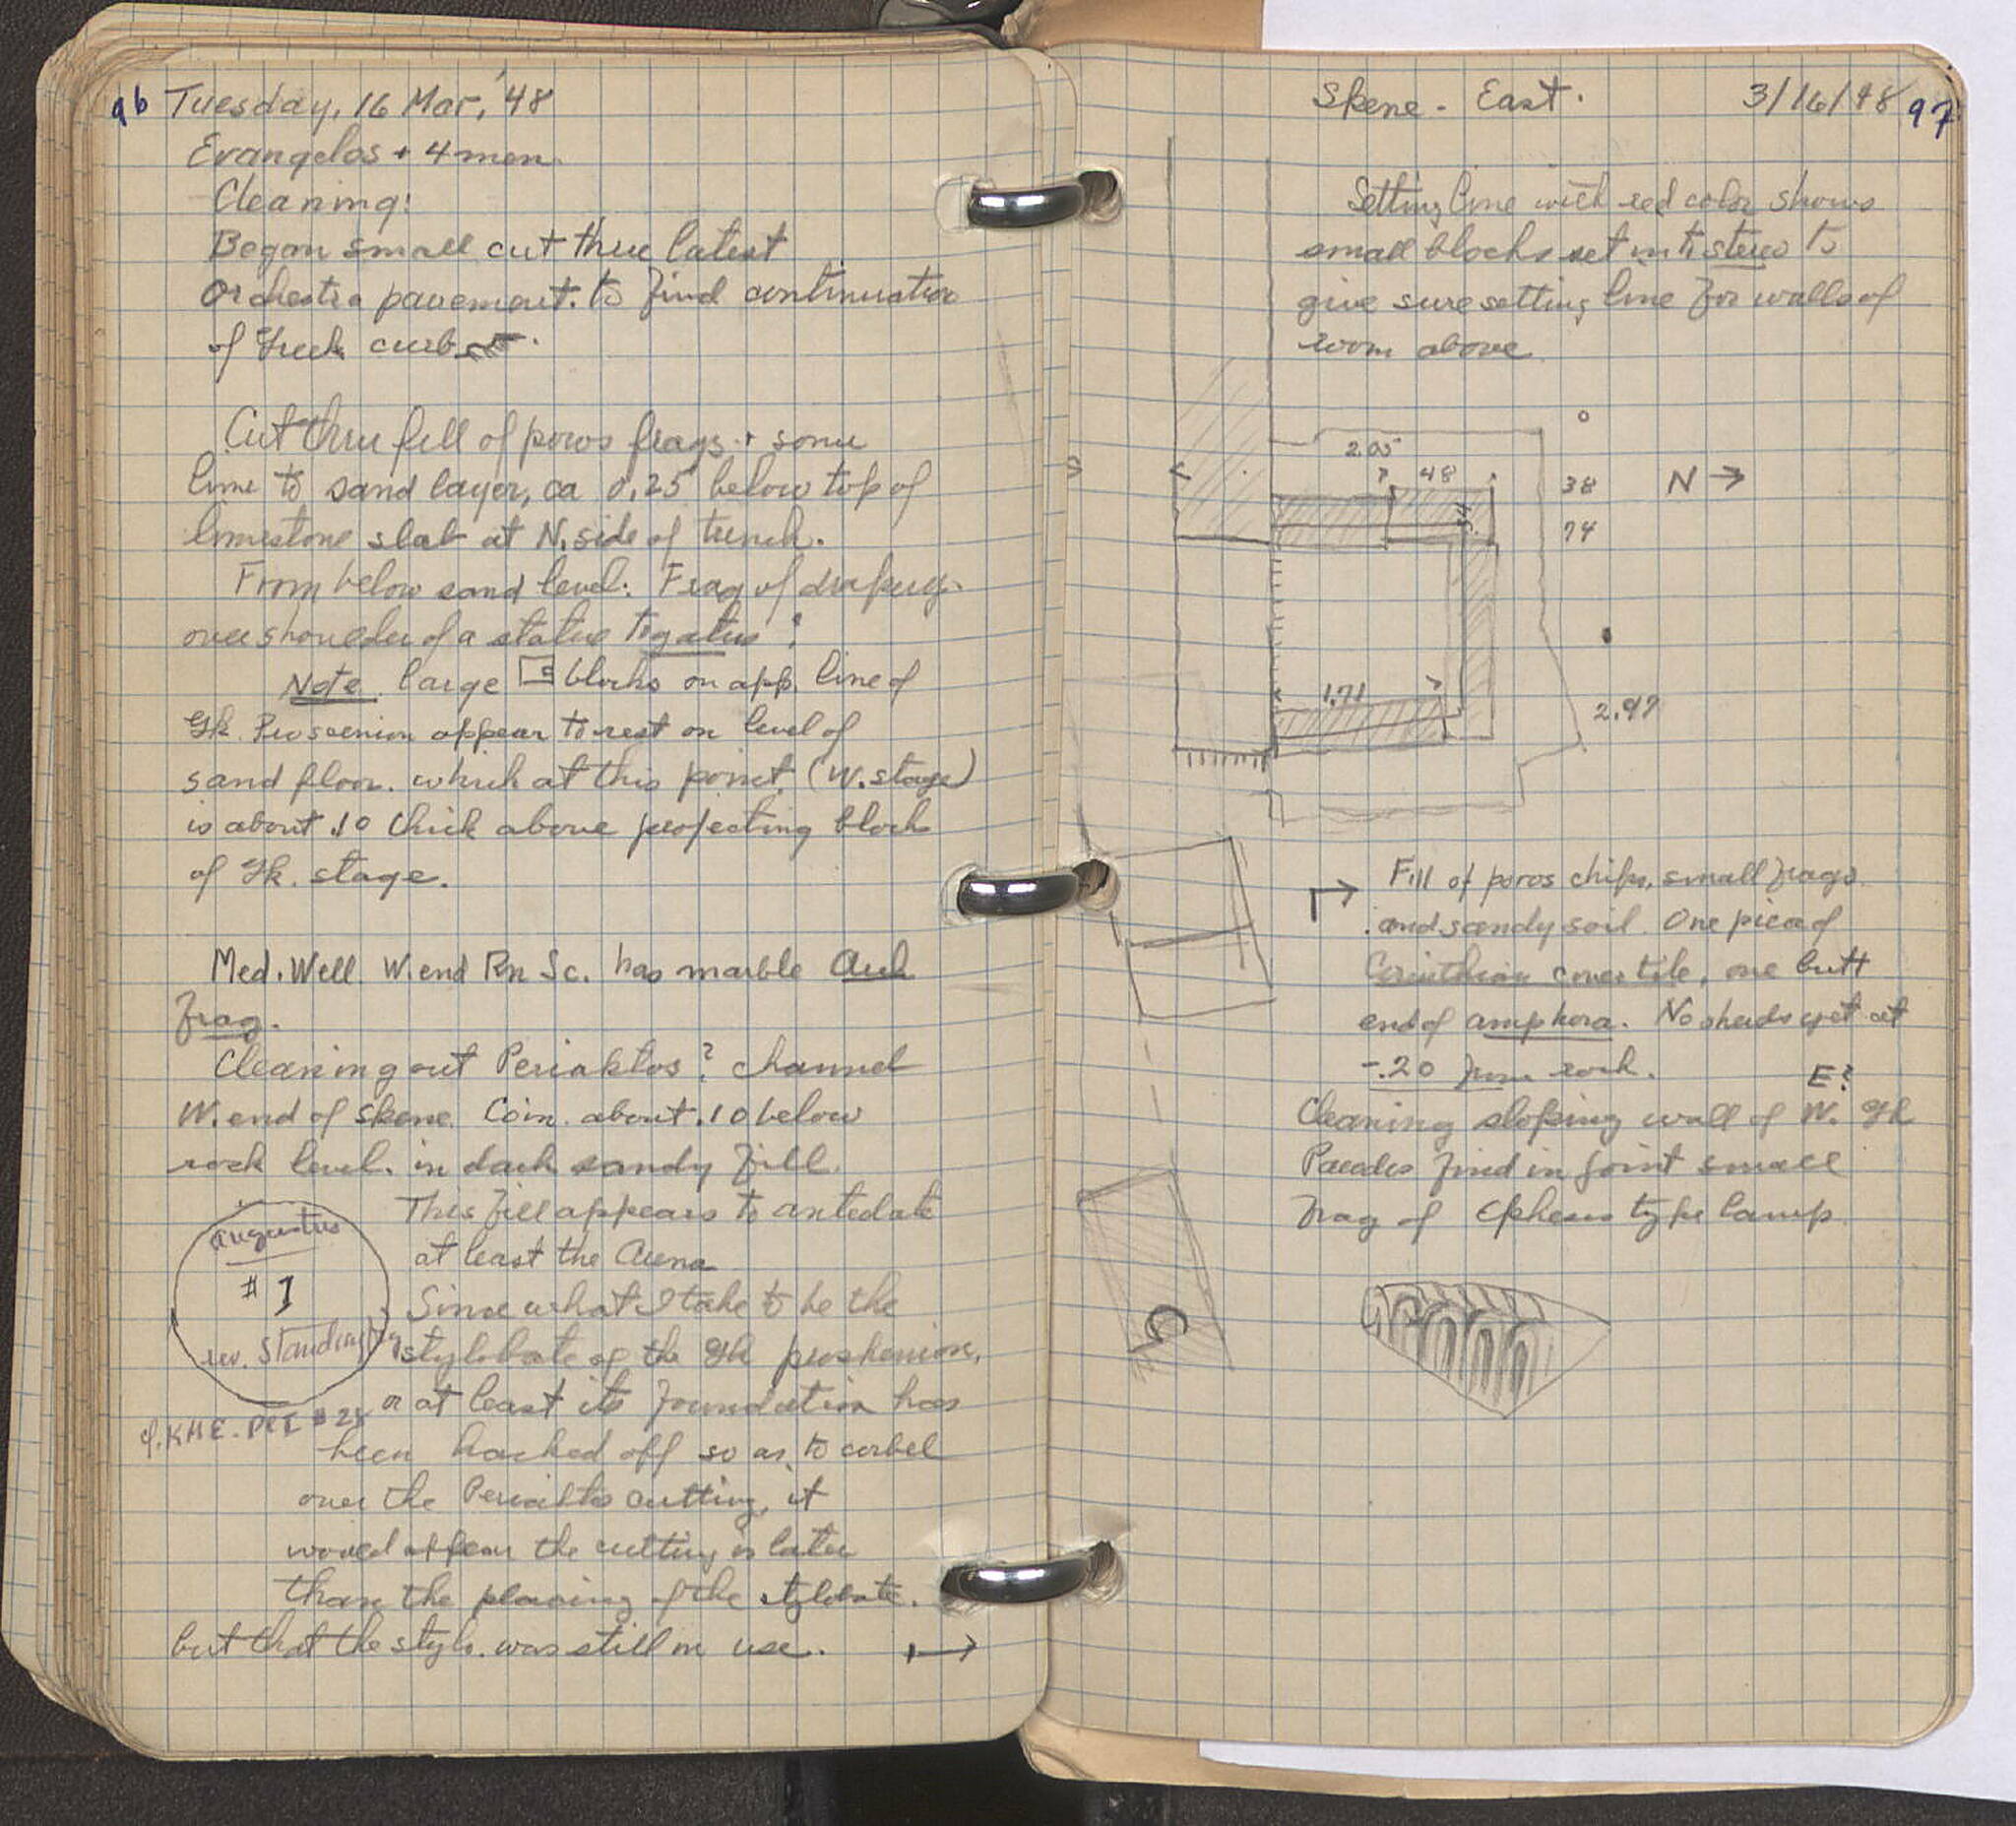 96 Tuesday, 16 Mar, '48
Evangelos + 4 men.
Cleaning:
Began small cut thru latest
Orchestra pavement. to find continuation
of Greek curb
Cut thru fill of poros frags + some
lime to sand layer, ca 0.25 below top of
limestone slab at N. side of trench.
From below sand level: Frag of drapery
over shoulder of a statue togatus?
Note. large blocks on app. line of
Gk. Proscenion appear to rest on level of
sand floor. which at this point (W. stage)
is about .10 thick above projecting block
of Gk. stage.
Med. Well. W. end Rn Sc. has marble Arch
frag.
Cleaning out Periaktos? channel
W. end of skene. Coin. about .10 below
rock level. in dark sandy fill.
Augustus
#1
rev. Standing fig.
cf. KME. Pl I #28
This fill appears to antedate
at least the Arena
Since what I take to be the
stylobate of the Gk proskenion,
or at least its foundation has
been hacked off so as to corbel
over the Periaktos cutting, it
would appear the cutting is later
than the placing of the stylobate.
but that the stylo. was still in use. →
Skene - East. 3/16/48 97
Setting line with red color shows
small blocks set in to stereo to
give sure setting line for walls of
room above
2.05
48
38
74
N →
S
1.71
2.97
Fill of poros chips, small frags
and sandy soil. One piece of
Corinthian cover tile, one butt
end of amphora. No sherds yet at
-.20 from rock.
E?
Cleaning sloping wall of W. Gk
Parodos find in joint small
frag of Ephesus type lamp.